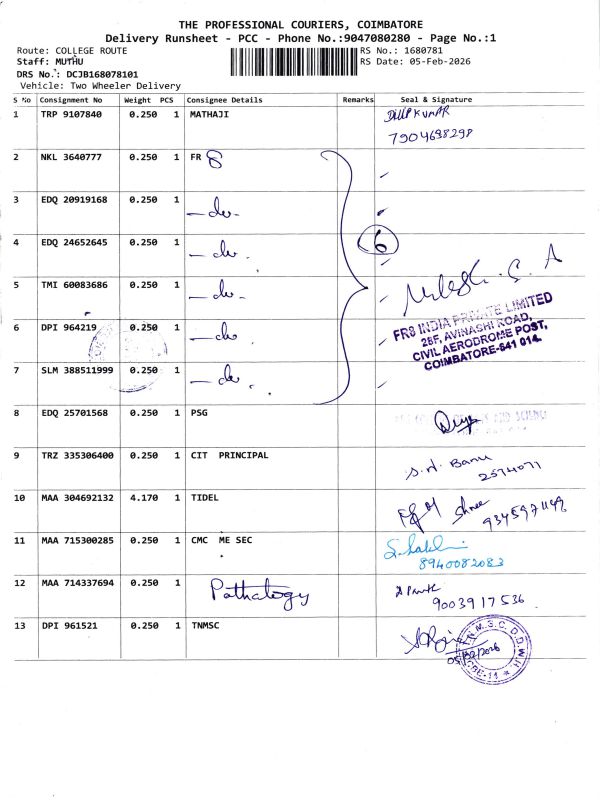 THE PROFESSIONAL COURIERS, COIMBATORE
Delivery Runsheet - PCC - Phone No.:9047080280 - Page No.:1
Route: COLLEGE ROUTE RS No.: 1680781
Staff: MUTHU RS Date: 05-Feb-2026
DRS No.: DCJB168078101
Vehicle: Two Wheeler Delivery
S No Consignment No Weight PCS Consignee Details Remarks Seal & Signature
1 TRP 9107840 0.250 1 MATHAJI DILIP KUMAR
7904698298
2 NKL 3640777 0.250 1 FR 8
3 EDQ 20919168 0.250 1 -do-
4 EDQ 24652645 0.250 1 -do- 6
5 TMI 60083686 0.250 1 -do-
6 DPI 964219 0.250 1 -do-
FR8 INDIA PRIVATE LIMITED
28F, AVINASHI ROAD,
CIVIL AERODROME POST,
COIMBATORE-641 014.
7 SLM 388511999 0.250 1 -do-
8 EDQ 25701568 0.250 1 PSG
9 TRZ 335306400 0.250 1 CIT PRINCIPAL S.N. Banu
2574071
10 MAA 304692132 4.170 1 TIDEL Shree
11 MAA 715300285 0.250 1 CMC ME SEC
8940082083
12 MAA 714337694 0.250 1 Pathalogy
9003917536
13 DPI 961521 0.250 1 TNMSC
05/02/2026